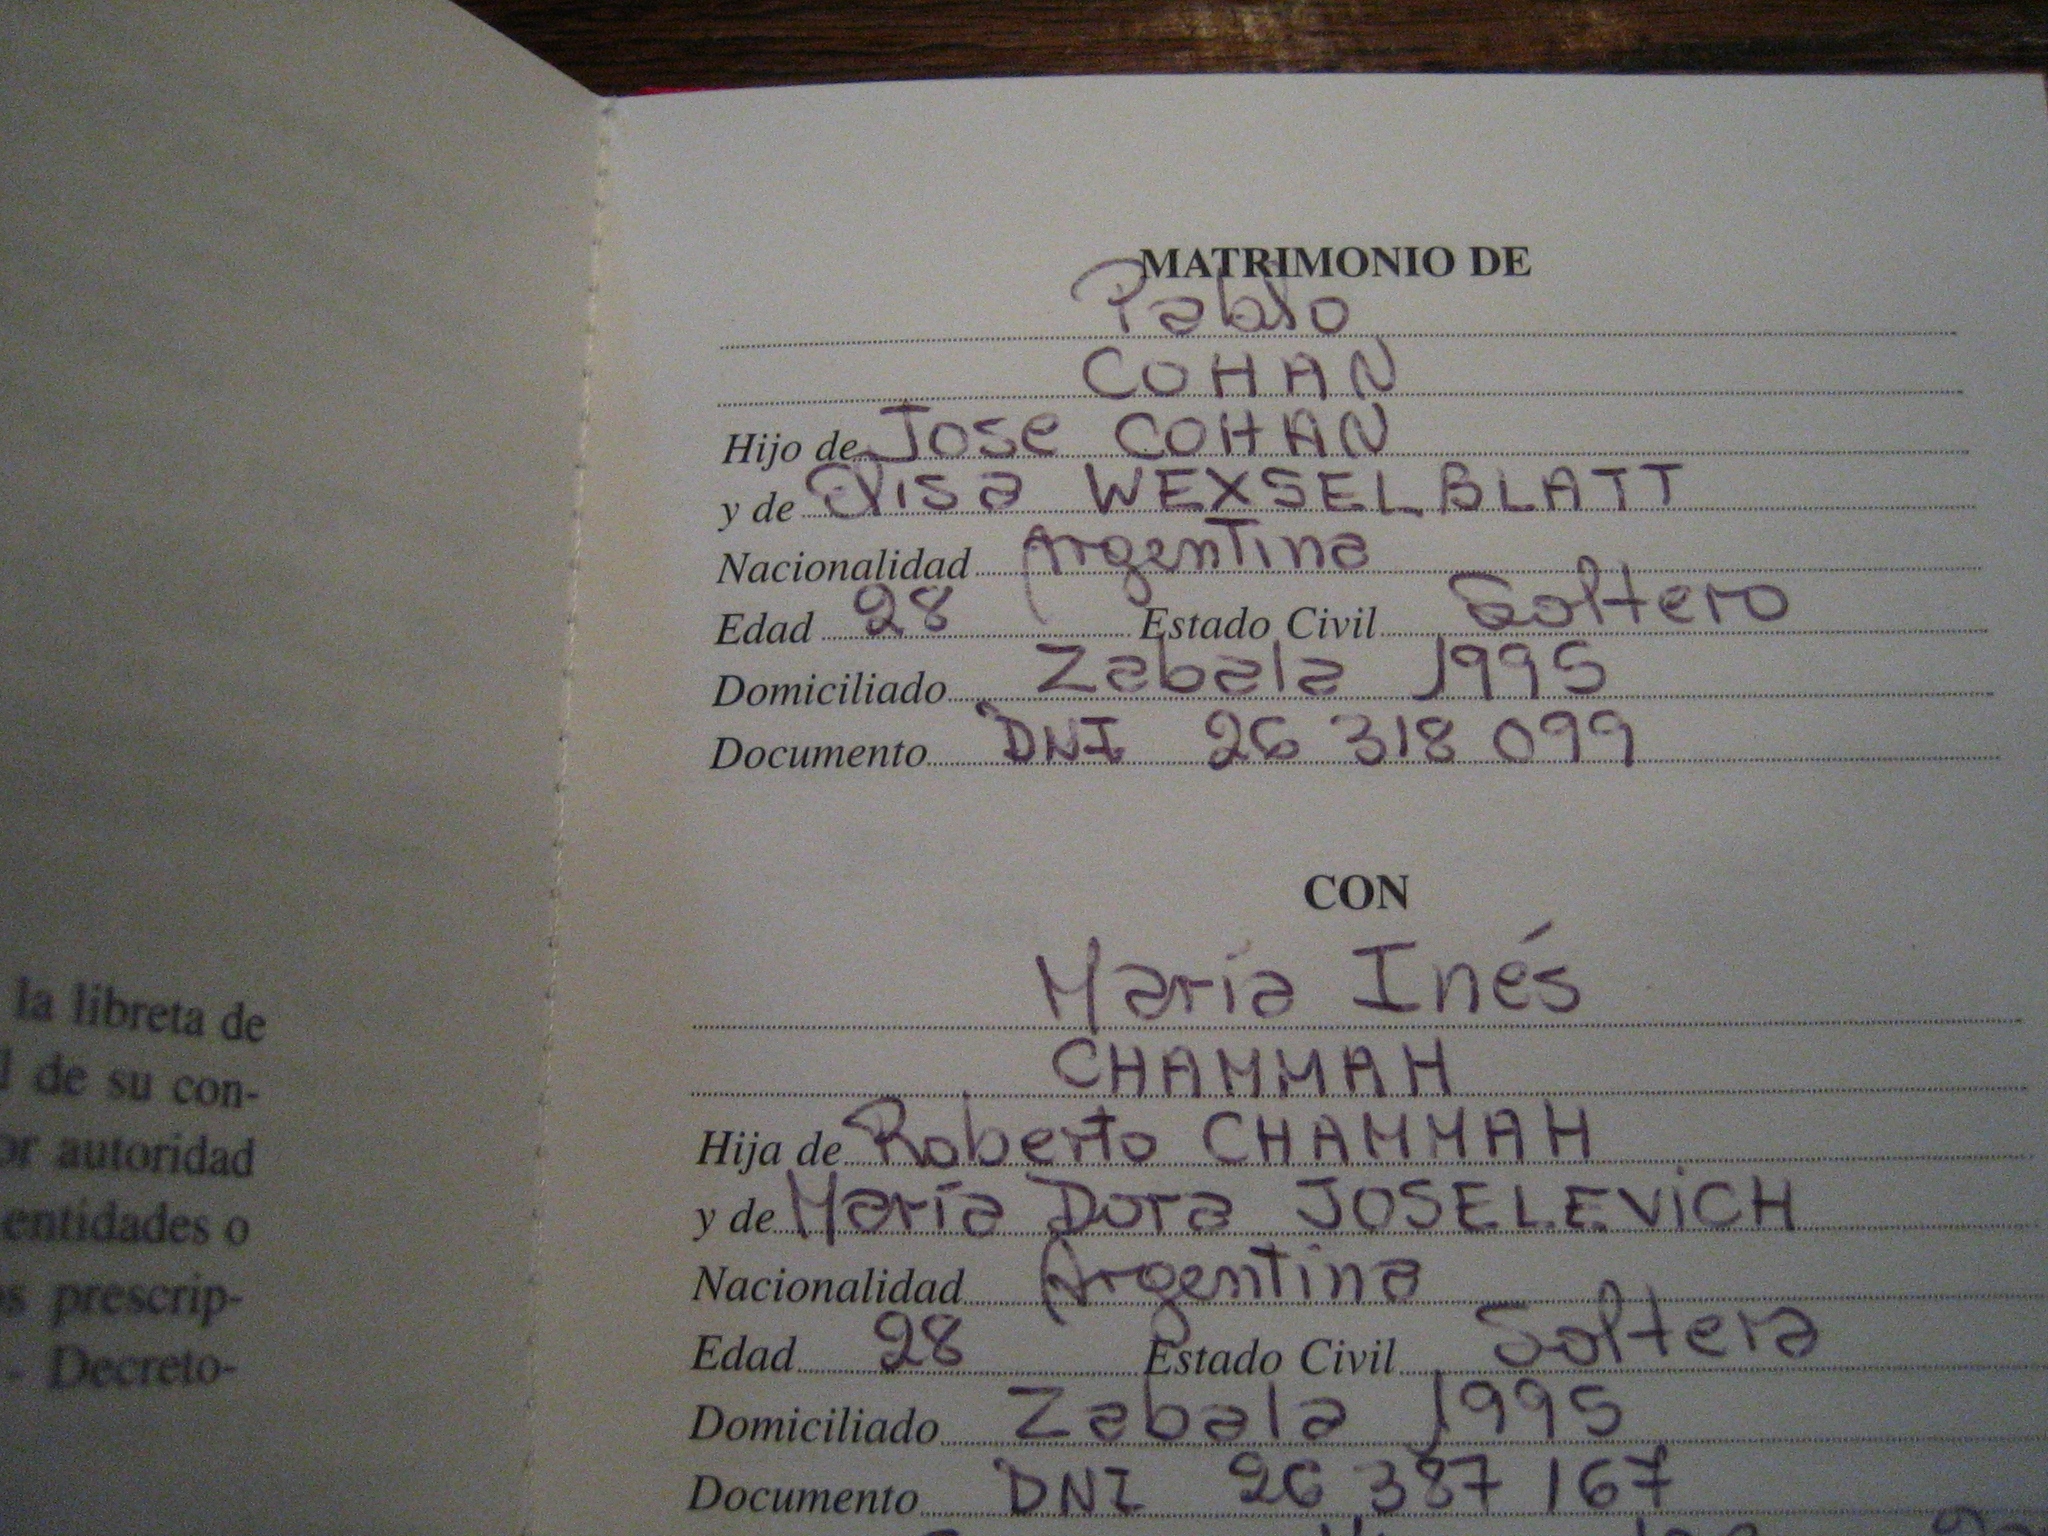 la libreta de
de su con-
autoridad
entidades o
prescrip-
- Decreto-
MATRIMONIO DE
Pablo
COHAN
Hijo de Jose COHAN
y de Elisa WEXSELBLATT
Nacionalidad Argentina
Edad 28 Estado Civil Soltero
Domiciliado Zabala 1995
Documento DNI 26 318 099
CON
María Inés
CHAMMAH
Hija de Roberto CHAMMAH
y de María Dora JOSELEVICH
Nacionalidad Argentina
Edad 28 Estado Civil Soltera
Domiciliado Zabala 1995
Documento DNI 26 387 167